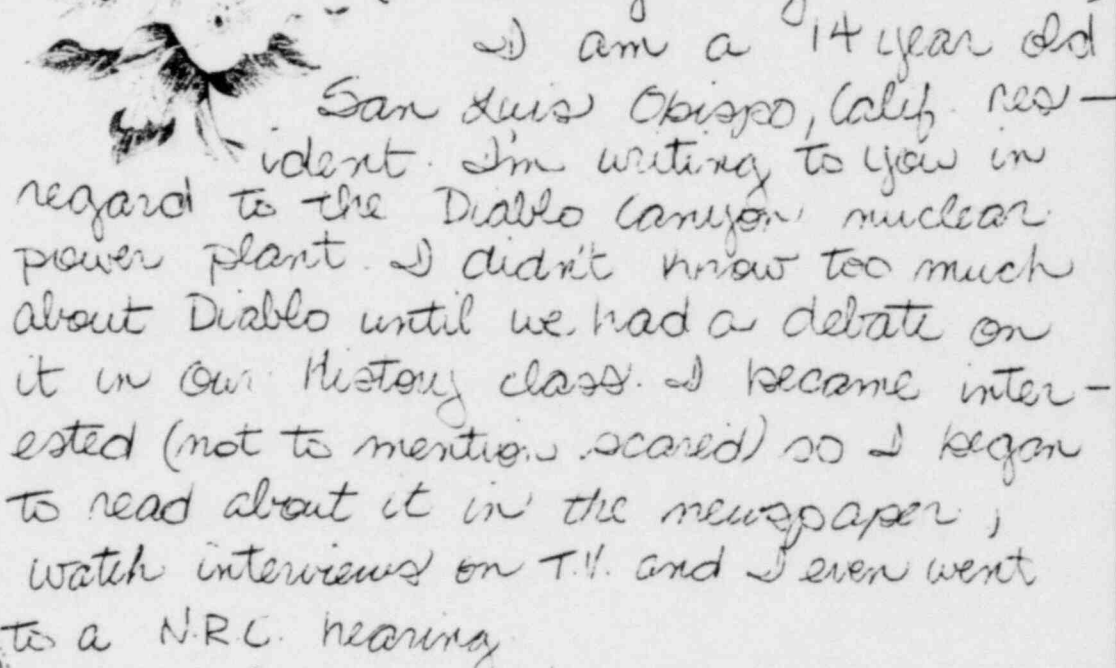 I am a 14 year old
San Luis Obispo, Calif. res-
ident. I'm writing to you in
regard to the Diablo Canyon nuclear
power plant. I didn't know too much
about Diablo until we had a debate on
it in our History class. I became inter-
ested (not to mention scared) so I began
to read about it in the newspaper,
watch interviews on T.V. and I even went
to a N.R.C. hearing